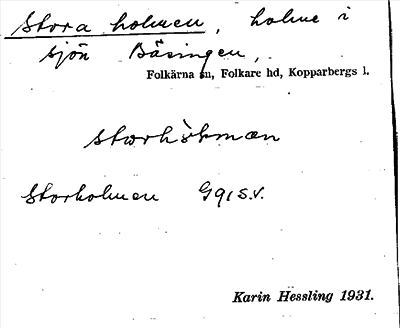 Stora holmen, holme i
sjön Bäsingen,
Folkärna sn, Folkare hd, Kopparbergs l.
Storholmen G91 S.V.
Karin Hessling 1931.